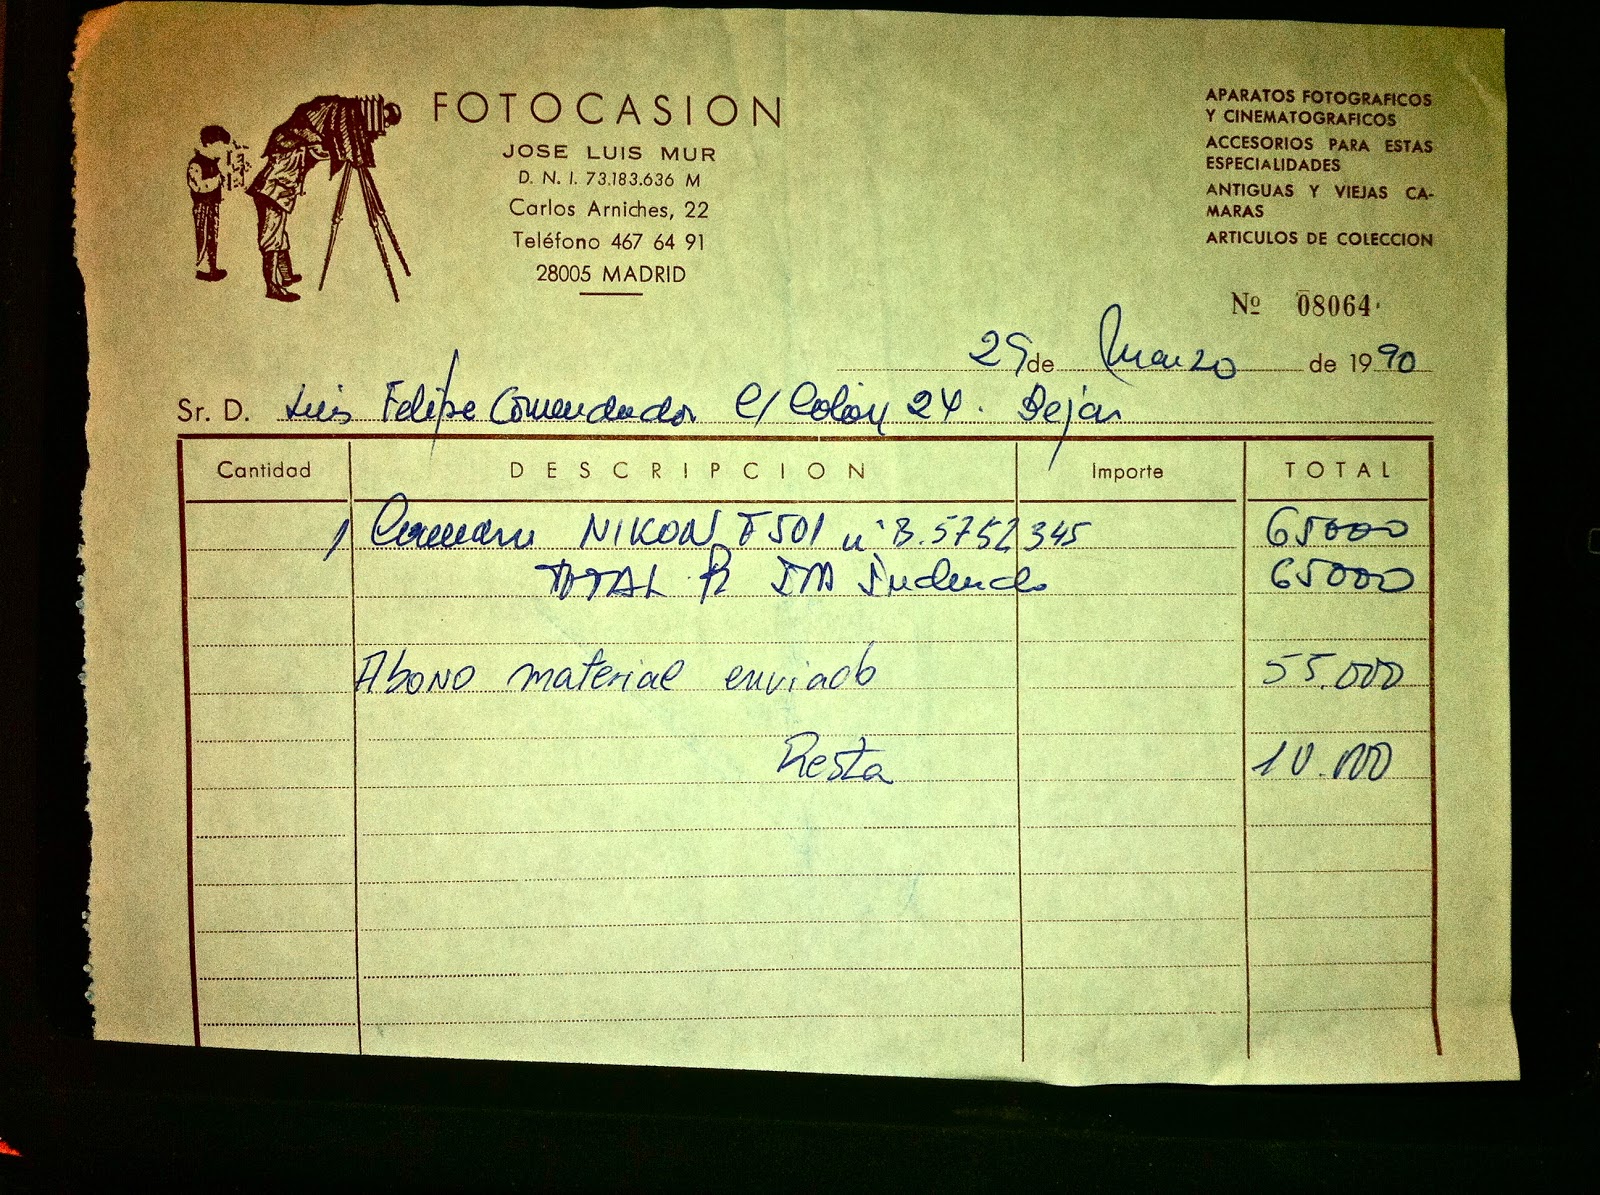 FOTOCASION
JOSE LUIS MUR
D. N. I. 73.183.636 M
Carlos Arniches, 22
Teléfono 467 64 91
28005 MADRID
APARATOS FOTOGRAFICOS
Y CINEMATOGRAFICOS
ACCESORIOS PARA ESTAS
ESPECIALIDADES
ANTIGUAS Y VIEJAS CA-
MARAS
ARTICULOS DE COLECCION
Nº 08064
29 de Marzo de 1990
Sr. D. Luis Felipe Comendador C/ Colón 24. Bejar
Cantidad DESCRIPCION Importe TOTAL
1 Camara NIKON F501 nº B.5752345 65000
TOTAL IVA Incluido 65000
Abono material enviado 55.000
Resta 10.000